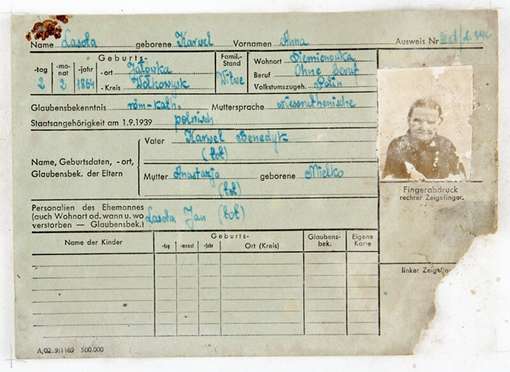 Name Lasota geborene Karwel Vornamen Anna Ausweis Nr.
Geburts- Famil.-Stand Wohnort Siemionowka
-tag -mo-nat -jahr -ort Jałowka Witwe Beruf Ohne Beruf
2 2 1864 -Kreis Wolkowysk Volkstumszugeh. Polin
Glaubensbekenntnis röm-kath. Muttersprache
Staatsangehörigkeit am 1.9.1939 polnisch
Vater Karwel Benedykt
(tot)
Name, Geburtsdaten, -ort,
Glaubensbek. der Eltern
Mutter Anastazja geborene Mielko
(tot)
Fingerabdruck
rechter Zeigefinger.
Personalien des Ehemannes
(auch Wohnort od. wann u. wo Lasota Jan (tot)
verstorben — Glaubensbek.)
Name der Kinder Geburts- Glaubens-bek. Eigene Karte
-tag -monat -jahr Ort (Kreis)
linker Zeigefin
A/02. 9/1169 500.000